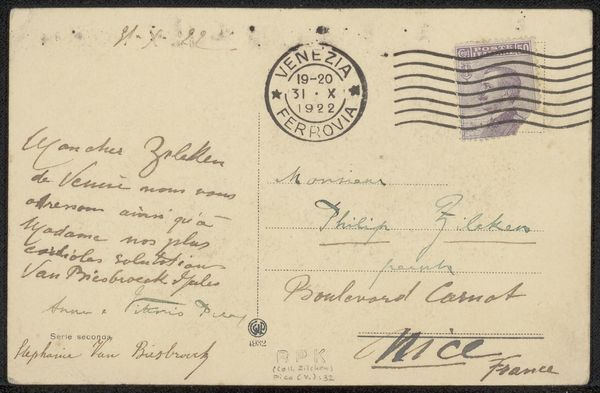 31-X-22
VENEZIA
19-20
31 · X
1922
FERROVIA
POSTE 50
Mon cher Zilcken
de Venise nous vous
adressons ainsi qu'à
Madame nos plus
cordiales salutations
Van Biesbroeck Jules
Anna e Vittorio Pica
Serie seconda
Stéphanie Van Biesbroeck
Monsieur
Philip Zilcken
peintre
Boulevard Carnot
Nice
France
1932
RPK
(coll. Zilcken)
Pica (V.): 32